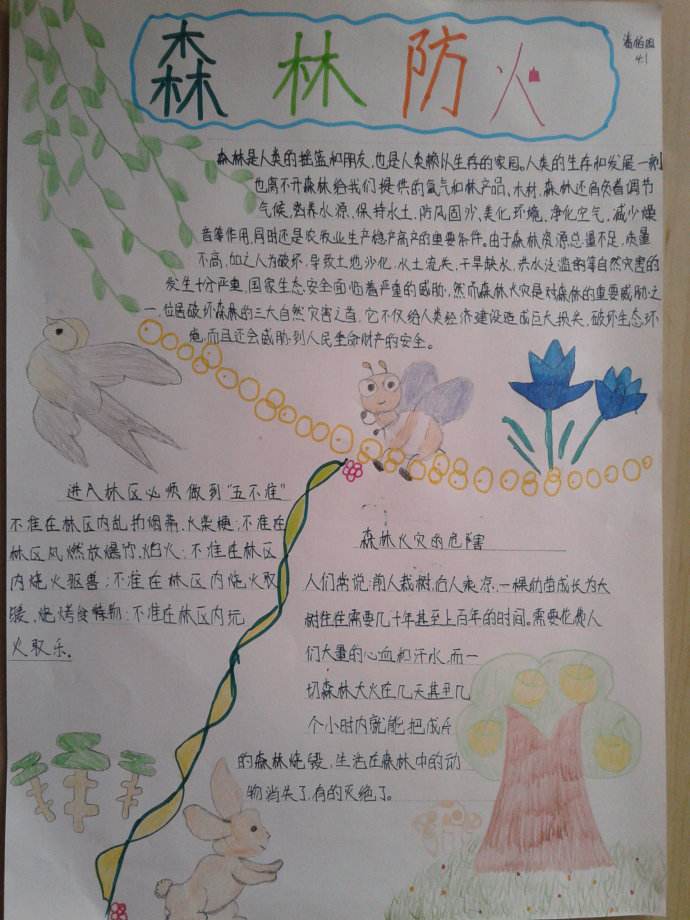 森林防火
4.1
森林是人类的摇篮和朋友,也是人类赖以生存的家园。人类的生存和发展一刻
也离不开森林给我们提供的氧气和林产品、木材,森林还肩负着调节
气候,涵养水源,保持水土,防风固沙,美化环境,净化空气,减少噪
音等作用,同时还是农牧业生产稳产高产的重要条件。由于森林资源总量不足,质量
不高,加之人为破坏,导致土地沙化,水土流失,干旱缺水,洪水泛滥的等自然灾害的
发生十分严重,国家生态安全面临着严重的威胁,然而森林火灾是对森林的重要威胁之
一,位居破坏森林的三大自然灾害之首。它不仅给人类经济建设造成巨大损失,破坏生态环
境,而且还会威胁到人民生命财产的安全。
进入林区必须做到“五不准”
不准在林区内乱扔烟蒂、火柴梗;不准在
林区风燃放爆竹、焰火;不准在林区
内烧火驱兽;不准在林区内烧火取
暖、烧烤食物;不准在林区内玩
火取乐。
森林火灾的危害
人们常说:前人栽树,后人乘凉,一棵幼苗成长为大
树往往需要几十年甚至上百年的时间。需要花费人
们大量的心血和汗水,而一
切森林大火在几天甚至几
个小时内就能把成片
的森林烧毁,生活在森林中的动
物消失了,有的灭绝了。